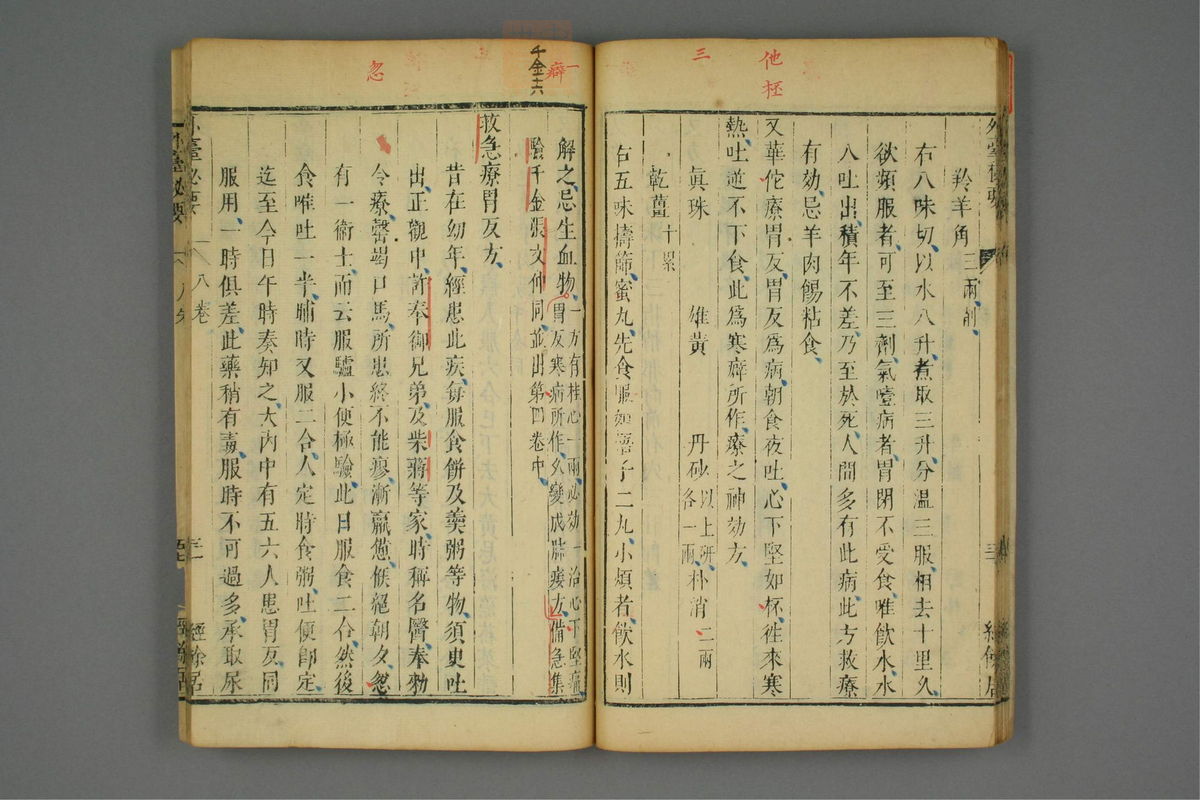 他
柸
三
羚羊角三兩削
右八味切以水八升煮取三升分溫三服相去十里久
欲頻服者可至三劑氣噎病者胃閉不受食唯飲水水
入吐出積年不差乃至於死人間多有此病此方救療
有効忌羊肉餳粘食
又華佗療胃反胃反爲病朝食夜吐心下堅如杯徃來寒
熱吐逆不下食此爲寒癖所作療之神効方
眞珠 雄黄 丹砂以上研各一兩朴消二兩
乾薑十累
右五味擣篩蜜丸先食服如梧子二丸小煩者飲水則
千金十六
一
癖
忽
解之忌生血物一方有桂心一兩必効一治心下堅痛
胃反寒病所作久變成肺痿方備急集
驗千金張文仲同並出第四卷中
救急療胃反方
昔在幼年經患此疾每服食餅及羮粥等物須臾吐
出正觀中許奉御兄弟及柴蔣等家時稱名醫奉勑
令療罄竭口馬所患終不能瘳漸羸憊候絕朝夕忽
有一衛士而云服驢小便極驗此日服食二合然後
食唯吐一半晡時又服二合人定時食粥吐便即定
迄至今日午時奏知之大內中有五六人患胃反同
服用一時俱差此藥稍有毒服時不可過多承取尿
八卷
經餘居